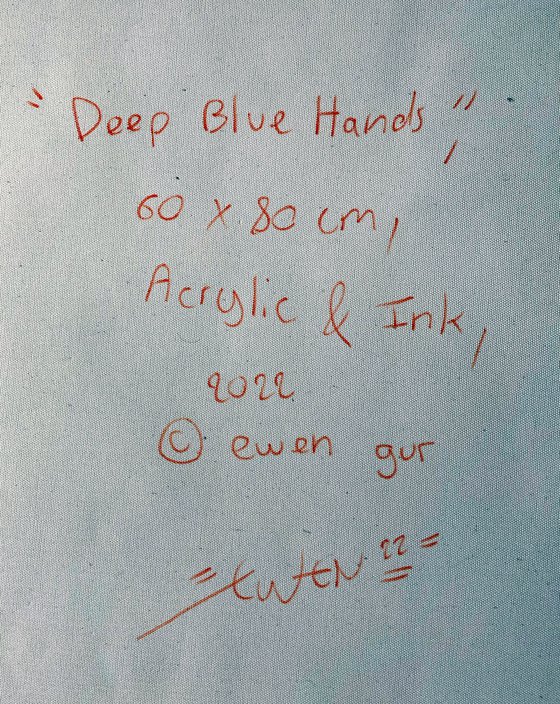 "Deep Blue Hands",
60 x 80 cm,
Acrylic & Ink,
2022
© ewen gur
=EWEN 22=